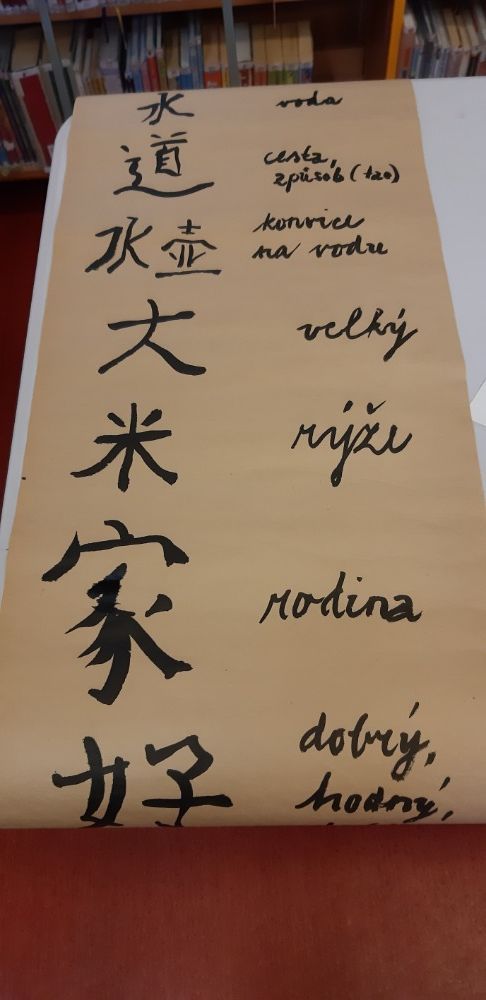 水 voda
道 cesta,
způsob (tao)
水壶 konvice
na vodu
大 velký
米 rýže
家 rodina
好 dobrý,
hodný,